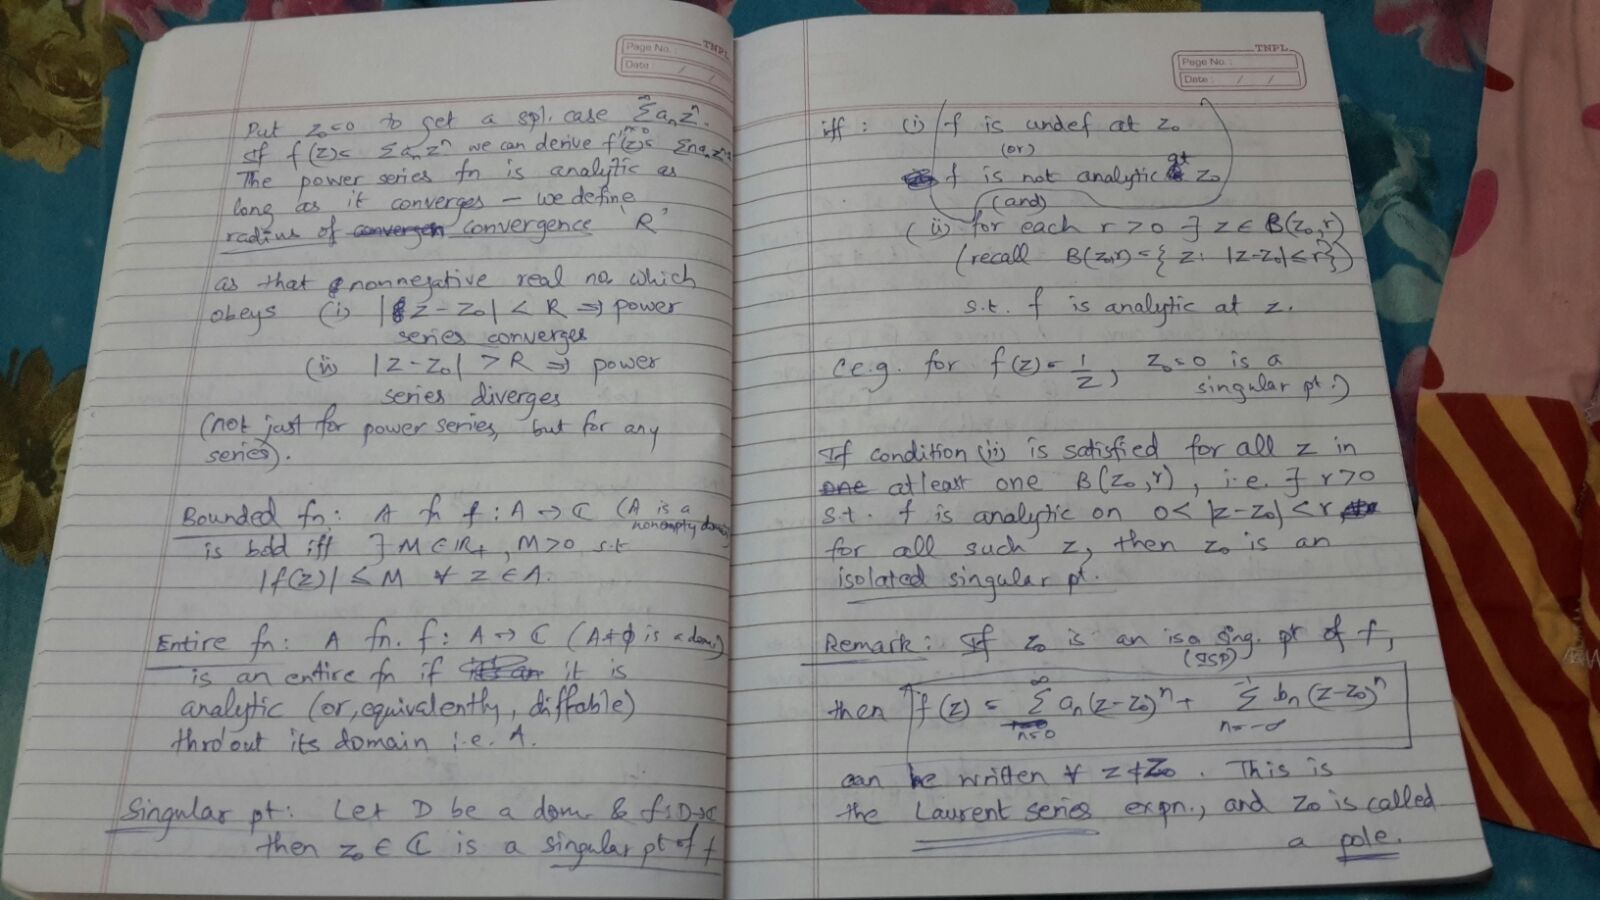 Page No.: TNPL
Date: / /
Put z₀=0 to get a spl. case Σ_{n=0}^∞ aₙzⁿ.
If f(z) = Σaₙzⁿ we can derive f'(z) = Σnaₙzⁿ⁻¹
The power series fn is analytic as
long as it converges – we define
radius of convergence 'R'
as that nonnegative real no. which
obeys (i) |z-z₀| < R ⇒ power
series converges
(ii) |z-z₀| > R ⇒ power
series diverges
(not just for power series, but for any
series).
Bounded fn: A fn f: A → ℂ (A is a
nonempty domain)
is bdd iff ∃ M ∈ ℝ₊, M>0 s.t
|f(z)| ≤ M ∀ z ∈ A.
Entire fn: A fn. f: A → ℂ (A≠φ is a dom.)
is an entire fn if it is
analytic (or, equivalently, diffable)
thro'out its domain i.e. A.
Singular pt: Let D be a dom. & f:D→ℂ
then z₀ ∈ ℂ is a singular pt of f
TNPL
Page No.:
Date: / /
iff: (i) f is undef at z₀
(or)
f is not analytic at z₀
(and)
(ii) for each r > 0 ∃ z ∈ B(z₀,r)
(recall B(z₀,r) = { z: |z-z₀| ≤ r })
s.t. f is analytic at z.
(e.g. for f(z) = 1/z, z₀=0 is a
singular pt.)
If condition (ii) is satisfied for all z in
atleast one B(z₀,r), i.e. ∃ r>0
s.t. f is analytic on 0< |z-z₀| < r
for all such z, then z₀ is an
isolated singular pt.
Remark: If z₀ is an iso sing. pt of f,
(ISP)
then f(z) = Σ_{n=0}^∞ aₙ(z-z₀)ⁿ + Σ_{n=-∞}^{-1} bₙ(z-z₀)ⁿ
can be written ∀ z≠z₀. This is
the Laurent series expn., and z₀ is called
a pole.